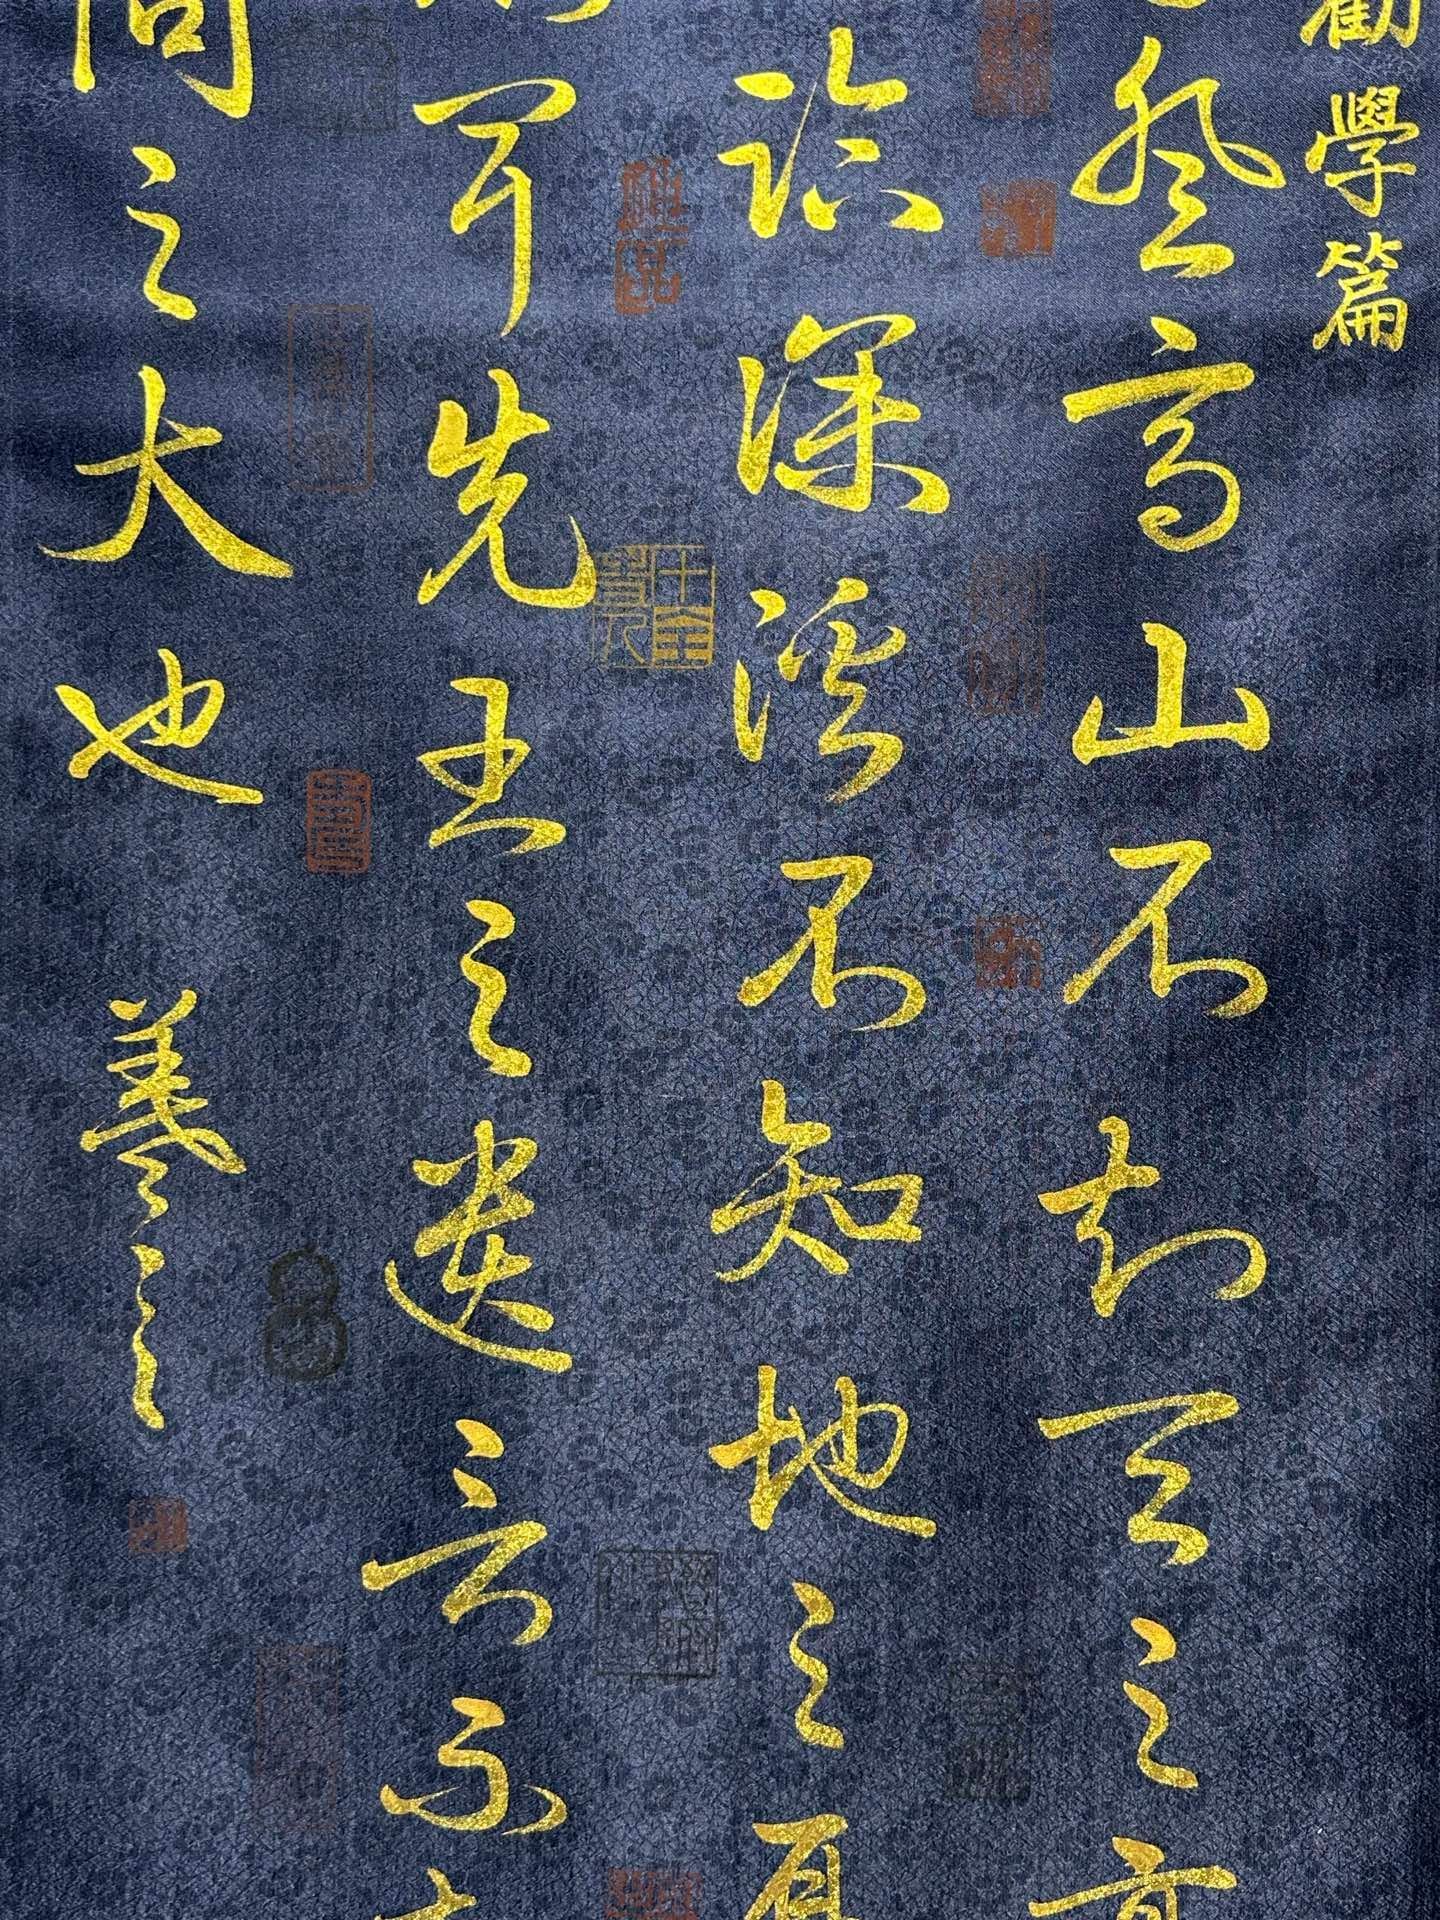 勸學篇
登高山不知天之高
臨深溪不知地之厚
聞先王之遺言不
問之大也
羲之